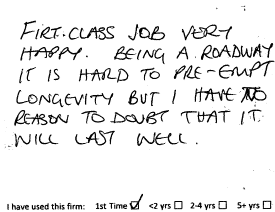 FIRT.CLASS JOB VERY
HAPPY. BEING A ROADWAY
IT IS HARD TO PRE-EMPT
LONGEVITY BUT I HAVE NO
REASON TO DOUBT THAT IT
WILL LAST WELL.
I have used this firm: 1st Time ☑ <2 yrs ☐ 2-4 yrs ☐ 5+ yrs ☐